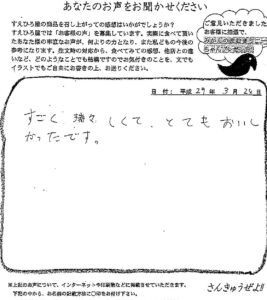 あなたのお声をお聞かせください
すえひろ屋の商品を召し上がっての感想はいかがでしょうか?
すえひろ屋では「お客様の声」を募集しています。実際に食べて頂い
たあなた様の率直なお声が、何よりの力となり、また私どもの今後の
参考になります。注文時の対応から、食べてみての感想、他店との違
いなど、どのようなことでも結構ですのでお気付きのことを、文でも
イラストでもご自由にお書きの上、お送りください。
ご意見いただきました
お客様に抽選で、
日 付: 平成 29 年 3 月 26 日
すごく 瑞々しくて、とてもおいし
かったです。
※上記のお声について、インターネットや印刷物などに掲載させていただきます。
下記の中から、お名前の記載方法に○印をお付け下さい。
さんきゅうぜよ!!